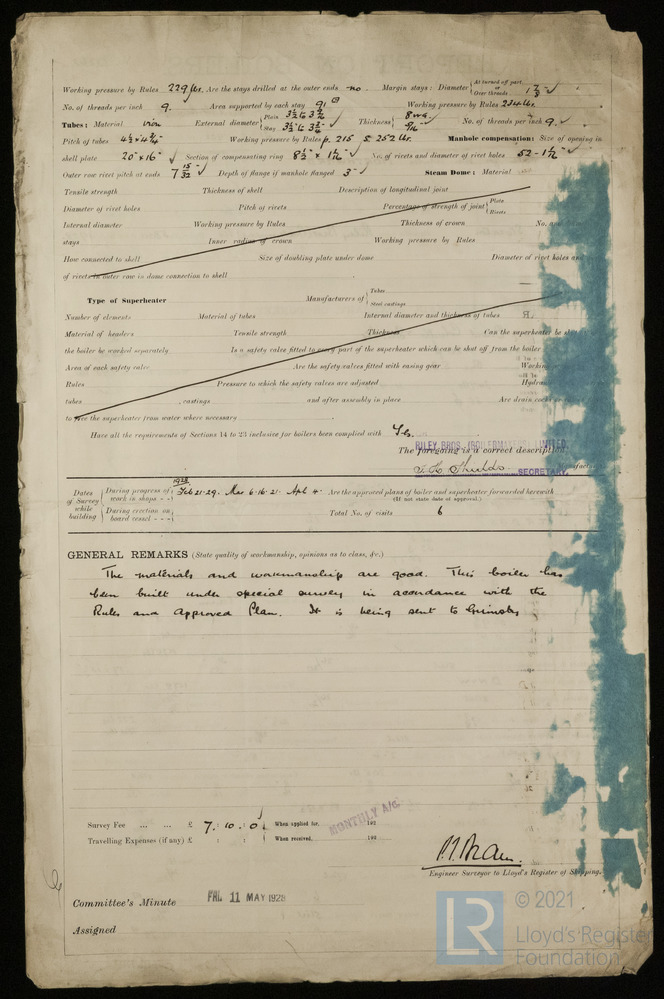 Working pressure by Rules 229 lbs. Are the stays drilled at the outer ends no. Margin stays: Diameter { At turned off part, or Over threads 1 7/8" ✓
No. of threads per inch 9. Area supported by each stay 91 Working pressure by Rules 234 lbs.
Tubes: Material iron External diameter { Plain 3½" & 3¾" Stay 3½" & 3¾" Thickness { 8 wg. 5/16" ✓ No. of threads per inch 9. ✓
Pitch of tubes 4½" x 4¾" Working pressure by Rules p. 215 s 252 lbs. Manhole compensation: Size of opening in
shell plate 20" x 16" ✓ Section of compensating ring 8½" x 1½" ✓ No. of rivets and diameter of rivet holes 52 - 1½" ✓
Outer row rivet pitch at ends 7 15/32" ✓ Depth of flange if manhole flanged 3" ✓ Steam Dome: Material
Tensile strength Thickness of shell Description of longitudinal joint
Diameter of rivet holes Pitch of rivets Percentage of strength of joint { Plate Rivets
Internal diameter Working pressure by Rules Thickness of crown No. and
stays Inner radius of crown Working pressure by Rules
How connected to shell Size of doubling plate under dome Diameter of rivet holes and
of rivets in outer row in dome connection to shell
Type of Superheater Manufacturers of { Tubes Steel castings
Number of elements Material of tubes Internal diameter and thickness of tubes
Material of headers Tensile strength Thickness Can the superheater be shut
the boiler be worked separately Is a safety valve fitted to every part of the superheater which can be shut off from the boiler
Area of each safety valve Are the safety valves fitted with easing gear Working
Rules Pressure to which the safety valves are adjusted Hydrau
tubes castings and after assembly in place Are drain cocks
to free the superheater from water where necessary
Have all the requirements of Sections 14 to 23 inclusive for boilers been complied with Yes.
RILEY BROS. (BOILERMAKERS) LIMITED
The foregoing is a correct description,
J. H. Shields SECRETARY. Manufacturer
Dates of Survey while building { During progress of work in shops - - } 1928 Feb 21. 29. Mar 6. 16. 21. Apl 4. Are the approved plans of boiler and superheater forwarded herewith
(If not state date of approval.)
{ During erection on board vessel - - - } Total No. of visits 6
GENERAL REMARKS (State quality of workmanship, opinions as to class, &c.)
The materials and workmanship are good. This boiler has
been built under special survey in accordance with the
Rules and Approved Plan. It is being sent to Grimsby
Survey Fee ... ... £ 7 : 10 : 0 { When applied for, 192
MONTHLY A/c
Travelling Expenses (if any) £ : : { When received, 192
Engineer Surveyor to Lloyd's Register of Shipping.
Committee's Minute FRI. 11 MAY 1928
Assigned
LR © 2021
Lloyd's Register
Foundation